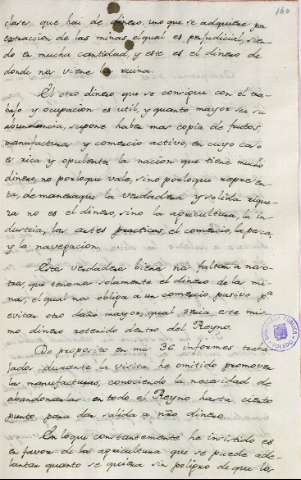 160
clases que hai de dinero, uno que se adquiere pr
estraccion de las minas, el qual es perjudicial, sien-
do en mucha cantidad, y este es el dinero de
donde nos viene la ruina.
El otro dinero que se consigue con el tra-
bajo y ocupacion es util, y quanto mayor sea su
abundancia, supone haber mas copia de frutos,
manufacturas y comercio activo, en cuyo caso
es rica y opulenta la nacion que tiene mucho
dinero, no por lo que vale, sino por lo que represen-
ta, de manera que la verdadera y solida rique-
za no es el dinero, sino la agricultura, la in-
dustria, las artes practicas, el comercio, la pesca,
y la navegacion.
Esta verdadera bienes nos faltan a noso-
tros, que tenemos solamente el dinero de las mi-
nas, el qual nos obliga a un comercio pasivo pa
evitar otro daño mayor, qual seria ese mis-
mo dinero detenido dentro del Reyno.
De proposito en mis 36 informes traba-
jados durante la visita he omitido promover
las manufacturas, conociendo la necesidad de
abandonarlas en todo el Reyno hasta cierto
punto, para dar salida a nro dinero.
En lo que constantemente he insistido es
en favor de la agricultura que se puede ade-
lantar quanto se quiera sin peligro de que las
TOLEDO